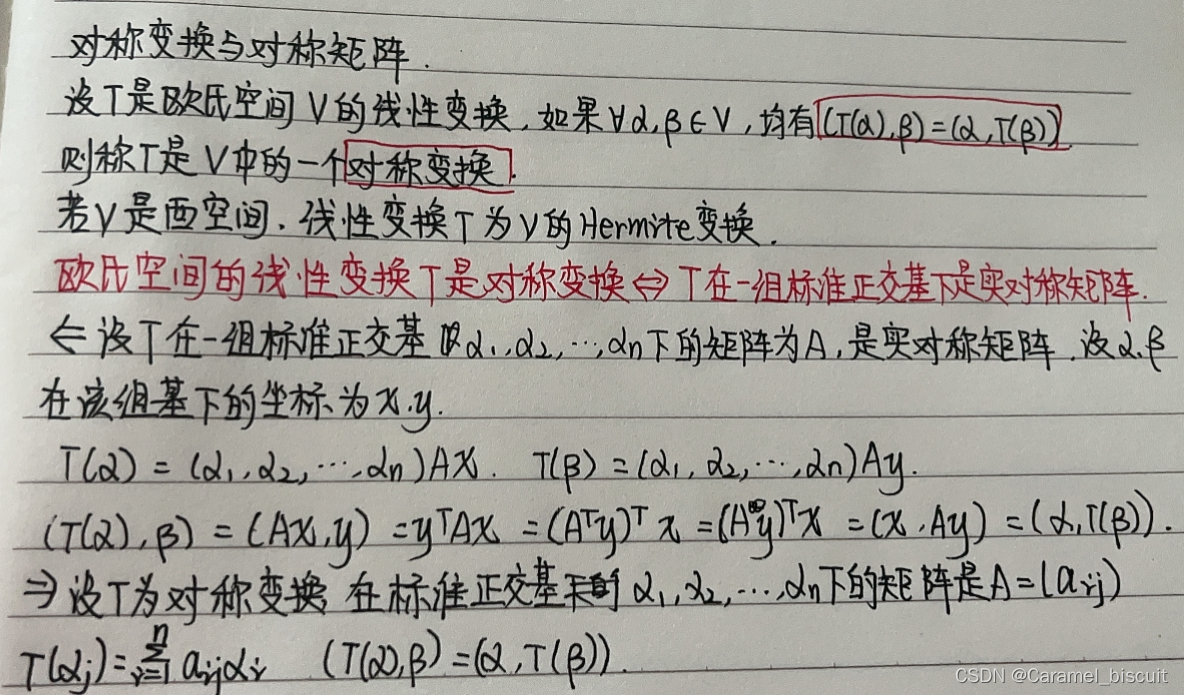 对称变换与对称矩阵.
设T是欧氏空间V的线性变换,如果∀α,β∈V,均有(T(α),β)=(α,T(β))
则称T是V中的一个对称变换.
若V是酉空间.线性变换T为V的Hermite变换.
欧氏空间的线性变换T是对称变换⇔T在一组标准正交基下是实对称矩阵.
⇐设T在一组标准正交基α₁,α₂,⋯,αn下的矩阵为A,是实对称矩阵.设α.β
在该组基下的坐标为x.y.
T(α)=(α₁,α₂,⋯,αn)Ax. T(β)=(α₁,α₂,⋯,αn)Ay.
(T(α),β)=(Ax,y)=yᵀAx=(Aᵀy)ᵀx=(Ay)ᵀx=(x,Ay)=(α,T(β)).
⇒设T为对称变换,在标准正交基α₁,α₂,⋯,αn下的矩阵是A=(aij)
T(αj)=∑ⁿi=1 aijαi (T(α),β)=(α,T(β)).
CSDN @Caramel_biscuit